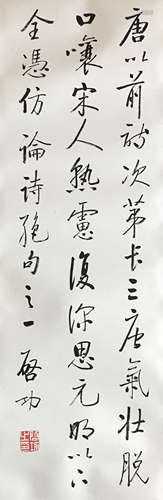 唐以前詩次第長三唐氣壯脫
口嚷宋人熟慮復深思元明以下
全憑仿論詩絕句之一 啟功